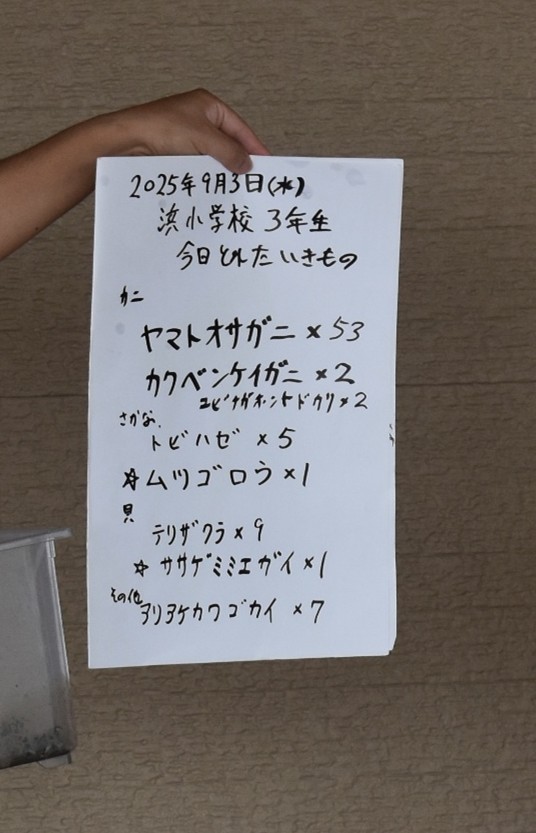 2025年9月3日(水)
浜小学校 3年生
今日とれたいきもの
カニ
ヤマトオサガニ × 53
カクベンケイガニ × 2
ユビナガホンヤドカリ × 2
さかな
トビハゼ × 5
☆ムツゴロウ × 1
貝
テリザクラ × 9
☆ ササゲミミエガイ × 1
その他
アリアケカワゴカイ × 7